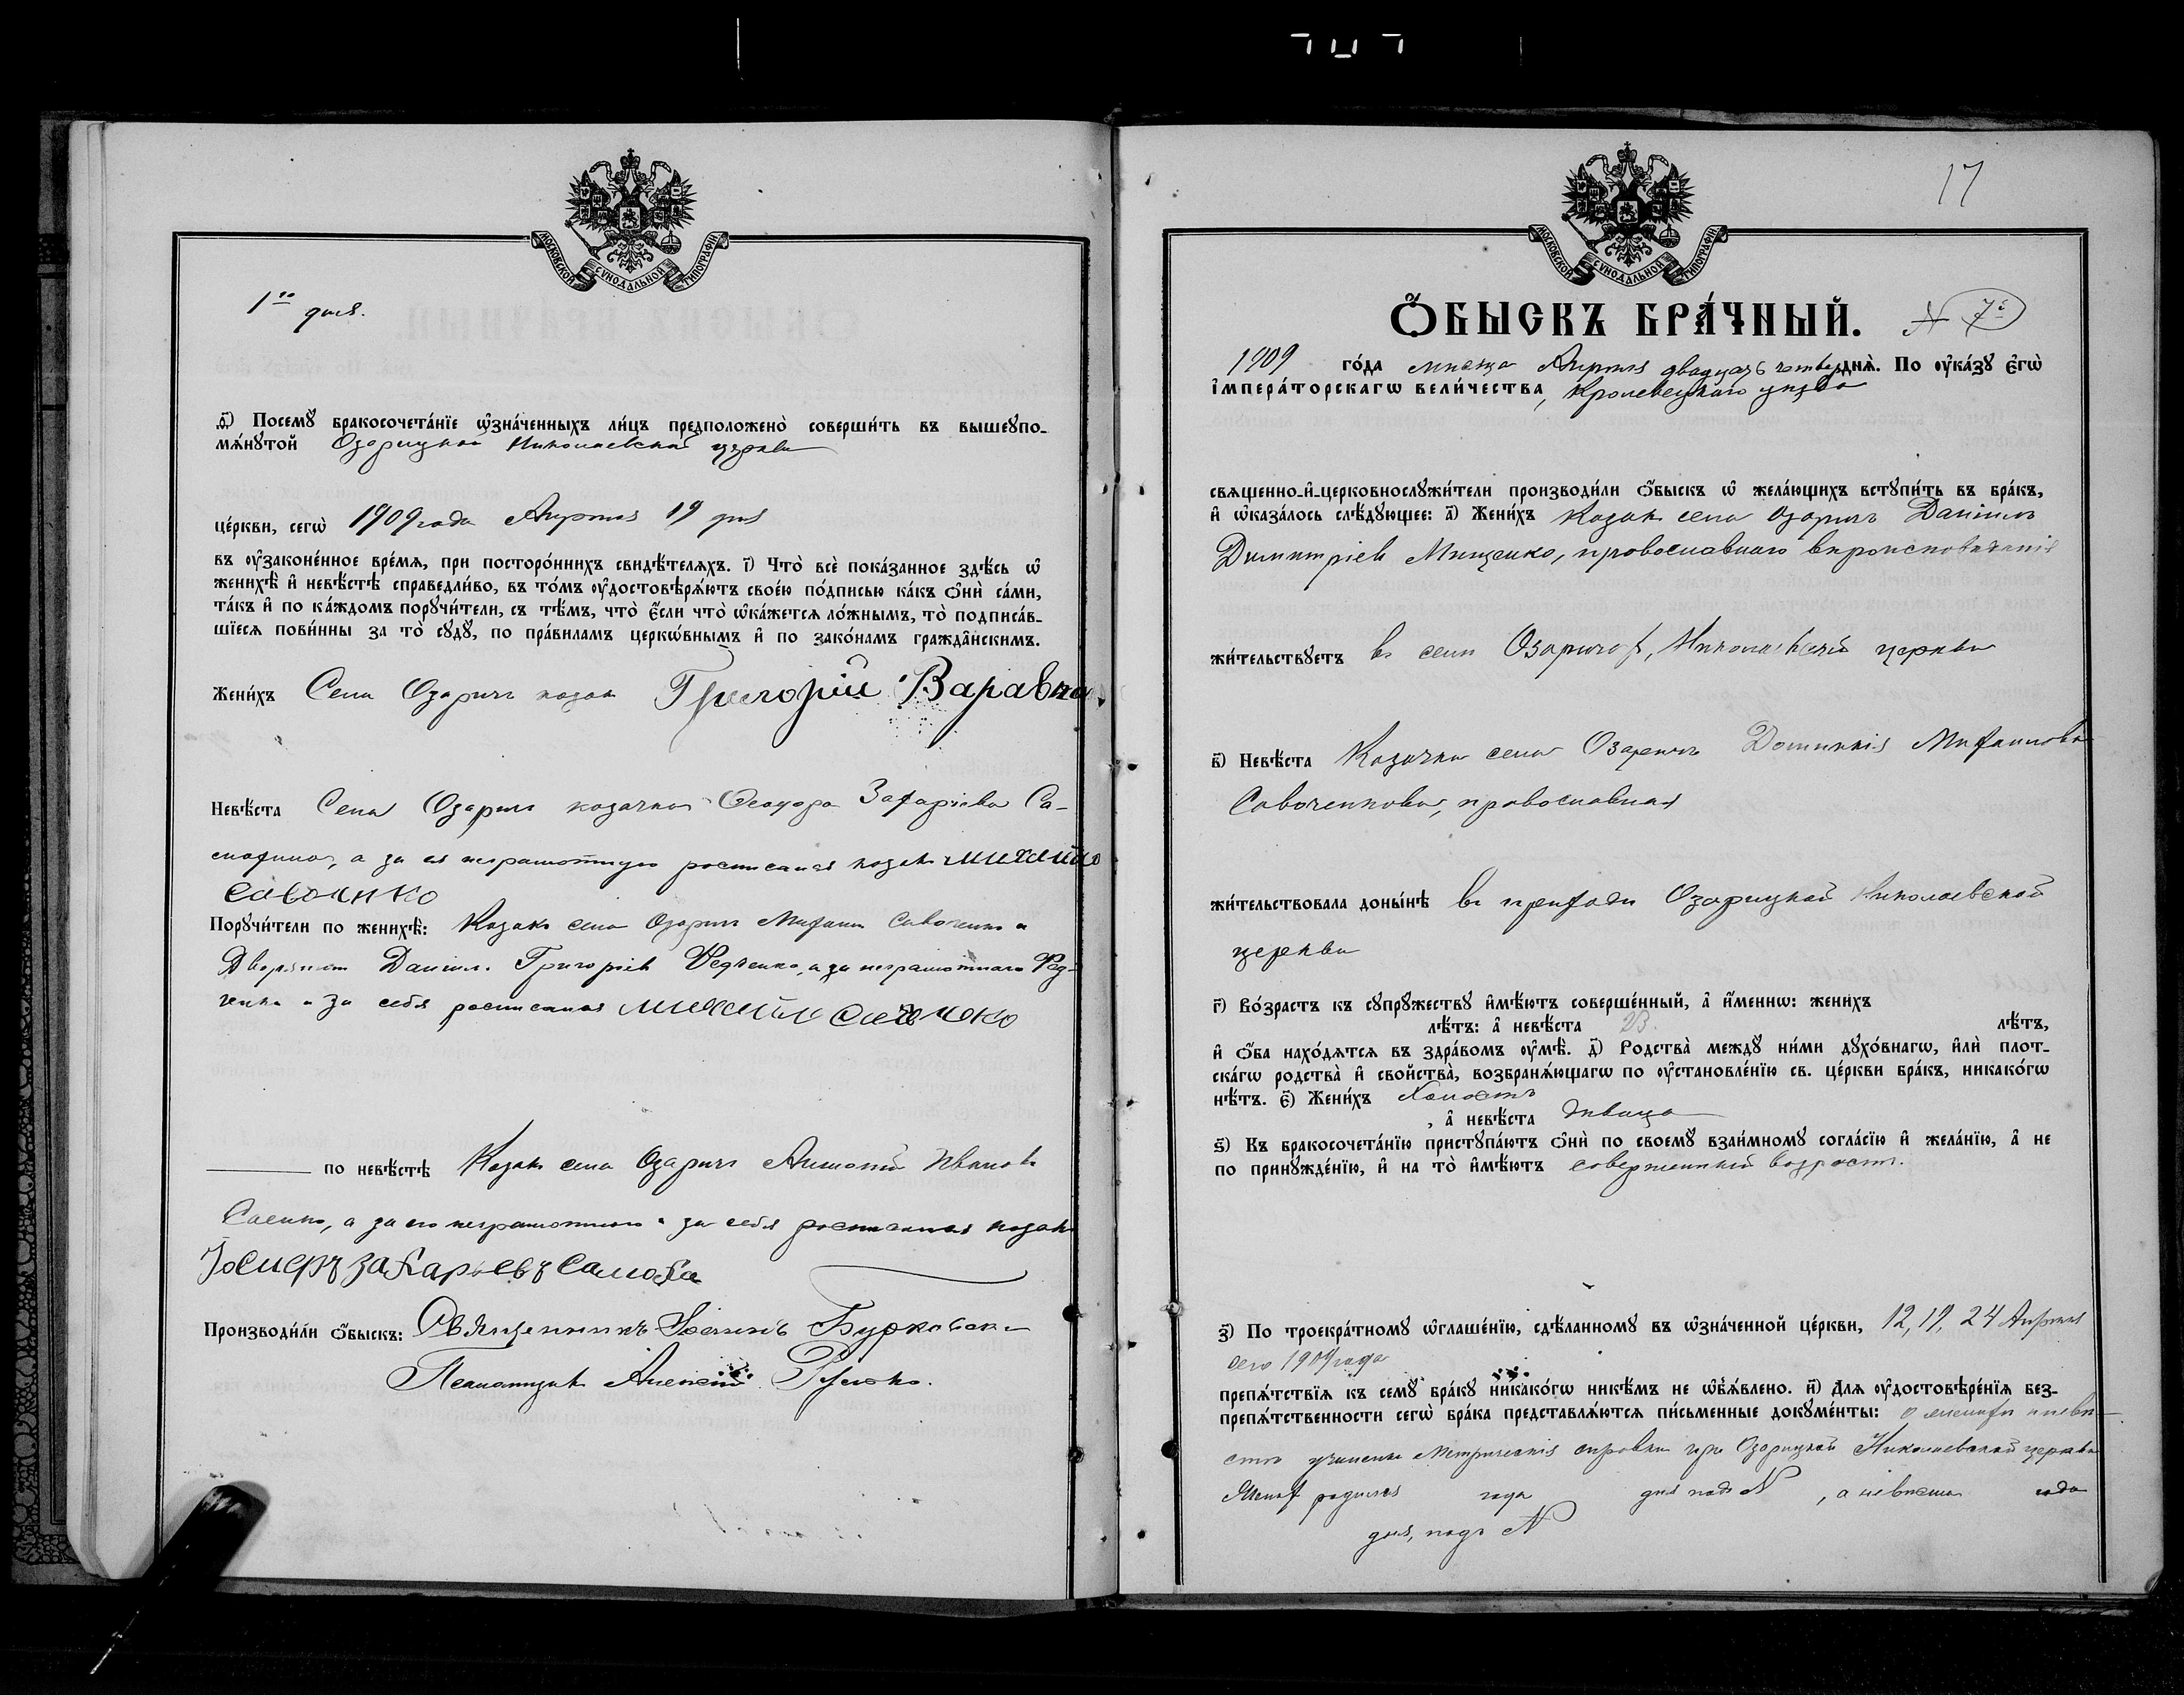 МОСКОВСКОЙ СѴНОДАЛЬНОЙ ТИПОГРАФІИ
1го дня.
ѳ҃) Посемꙋ бракосочета́нїе ѡ҆зна́ченныхъ ли́цъ предположено̀ соверши́ть въ вышеꙋпо-
мѧ́нꙋтой Озарицкой Николаевской церкви
це́ркви, сегѡ̀ 1909 года Апреля 19 дня
въ ᲂу҆законе́нное вре́мѧ, при посторо́ннихъ свидѣ́телѧхъ. і҃) Что̀ всѐ пока́занное здѣ́сь ѡ҆
женихѣ̀ и҆ невѣ́стѣ справедли́во, въ то́мъ ᲂу҆достовѣрѧ́ютъ свое́ю по́дписью ка́къ ѻ҆нѝ са́ми,
та́къ и҆ по ка́ждомъ порꙋчи́тели, съ тѣ́мъ, что̀ є҆́сли что̀ ѡ҆ка́жетсѧ ло́жнымъ, то̀ подписа́в-
шїесѧ пови́нны за то̀ сꙋдꙋ̀, по пра́виламъ церко́внымъ и҆ по зако́намъ гражда́нскимъ.
Жени́хъ Села Озарич козак Григорій Варавка
Невѣ́ста Села Озарич козачка Ѳеодора Захаріева Са-
мохина, а за ея неграмотную росписался козак михайло
савченко
Порꙋчи́тели по женихѣ̀: Козак села Озарич Михаил Савченко и
Дворянин Даниил Григоріев Федченко, а за неграмотнаго Фед-
ченка и за себя росписался михайло савченко
по невѣ́стѣ Козак села Озарич Антоній Иванов
Саенко, а за его неграмотного и за себя росписался козак
Іосифъ Захарьевъ Самоха
Производи́ли ѻ҆́быскъ: Священникъ Іоаннъ Бурковск
Псаломщик Алексей
МОСКОВСКОЙ СѴНОДАЛЬНОЙ ТИПОГРАФІИ
17
Ѻ҆́БЫСКЪ БРА́ЧНЫЙ. N 7й
1909 го́да месяца Апреля двадцать четвер днѧ̀. По ᲂу҆ка́зꙋ є҆гѡ̀
і҆мпера́торскагѡ вели́чества, Кролевецкаго уезда
свѧщенно-и҆-церковнослꙋжи́тели производи́ли ѻ҆́быскъ ѡ҆ жела́ющихъ встꙋпи́ть въ бра́къ,
и҆ ѡ҆каза́лось слѣ́дꙋющее: а҃) Жени́хъ Козак села Озарич Даниил
Димитріев Мищенко, православнаго вероисповеданія
жи́тельствꙋетъ в селе Озаричах, Николаевской церкви
в҃) Невѣ́ста Козачка села Озарич Домникія Михаилова
Савченкова, православная
жи́тельствовала доны́нѣ в приходе Озарицкой Николаевской
церкви
г҃) Во́зрастъ къ сꙋпрꙋ́жествꙋ и҆мѣ́ютъ соверше́нный, а҆ и҆́менно: жени́хъ
лѣ́тъ: а҆ невѣ́ста 23. лѣ́тъ,
и҆ ѻ҆́ба нахо́дѧтсѧ въ здра́вомъ ᲂу҆мѣ̀. д҃) Родства̀ междꙋ̀ ни́ми дꙋхо́внагѡ, и҆лѝ плот-
ска́гѡ родства̀ и҆ свойства̀, возбранѧ́ющагѡ по ᲂу҆становле́нїю св. це́ркви бра́къ, никако́гѡ
нѣ́тъ. є҃) Жени́хъ Холостъ
, а҆ невѣ́ста девица
ѕ҃) Къ бракосочета́нїю пристꙋпа́ютъ ѻ҆нѝ по своемꙋ̀ взаи́мномꙋ согла́сїю и҆ жела́нїю, а҆ не
по принꙋжде́нїю, и҆ на то̀ и҆мѣ́ютъ совершенный возраст.
з҃) По троекра́тномꙋ ѡ҆глаше́нїю, сдѣ́ланномꙋ въ ѡ҆зна́ченной це́ркви, 12, 19, 24 Апреля
сего 1909 года
препѧ́тствїѧ къ семꙋ̀ бра́кꙋ никако́гѡ никѣ́мъ не ѡ҆б̾ѧ́влено. и҃) Длѧ ᲂу҆достовѣре́нїѧ без-
препѧ́тственности сегѡ̀ бра́ка представлѧ́ютсѧ пи́сьменные докꙋме́нты: о женихе и неве-
сте учинены Метрическія справки при Озарицкой Николаевской церкви
Жених родился года дня под N , а невеста года
дня, подъ N